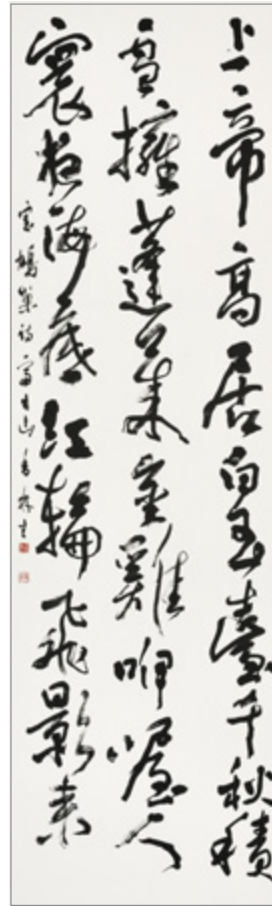 上帝高居白玉臺千秋積
雪擁蓬萊金雞咿喔人
寰夜海底紅輪飛影来
室鳩巣詩富士山